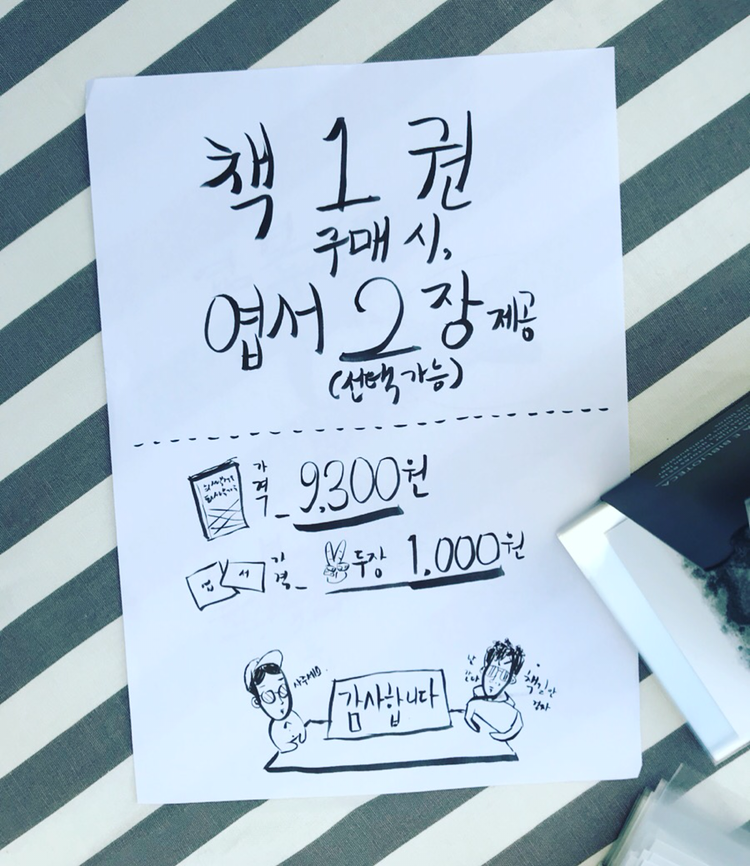 책 1 권
구매 시,
엽서 2 장 제공
(선택가능)
가격_ 9,300원
엽서 가격_ 두장 1,000원
사주세요.
감사합니다
BIBLIOTECA